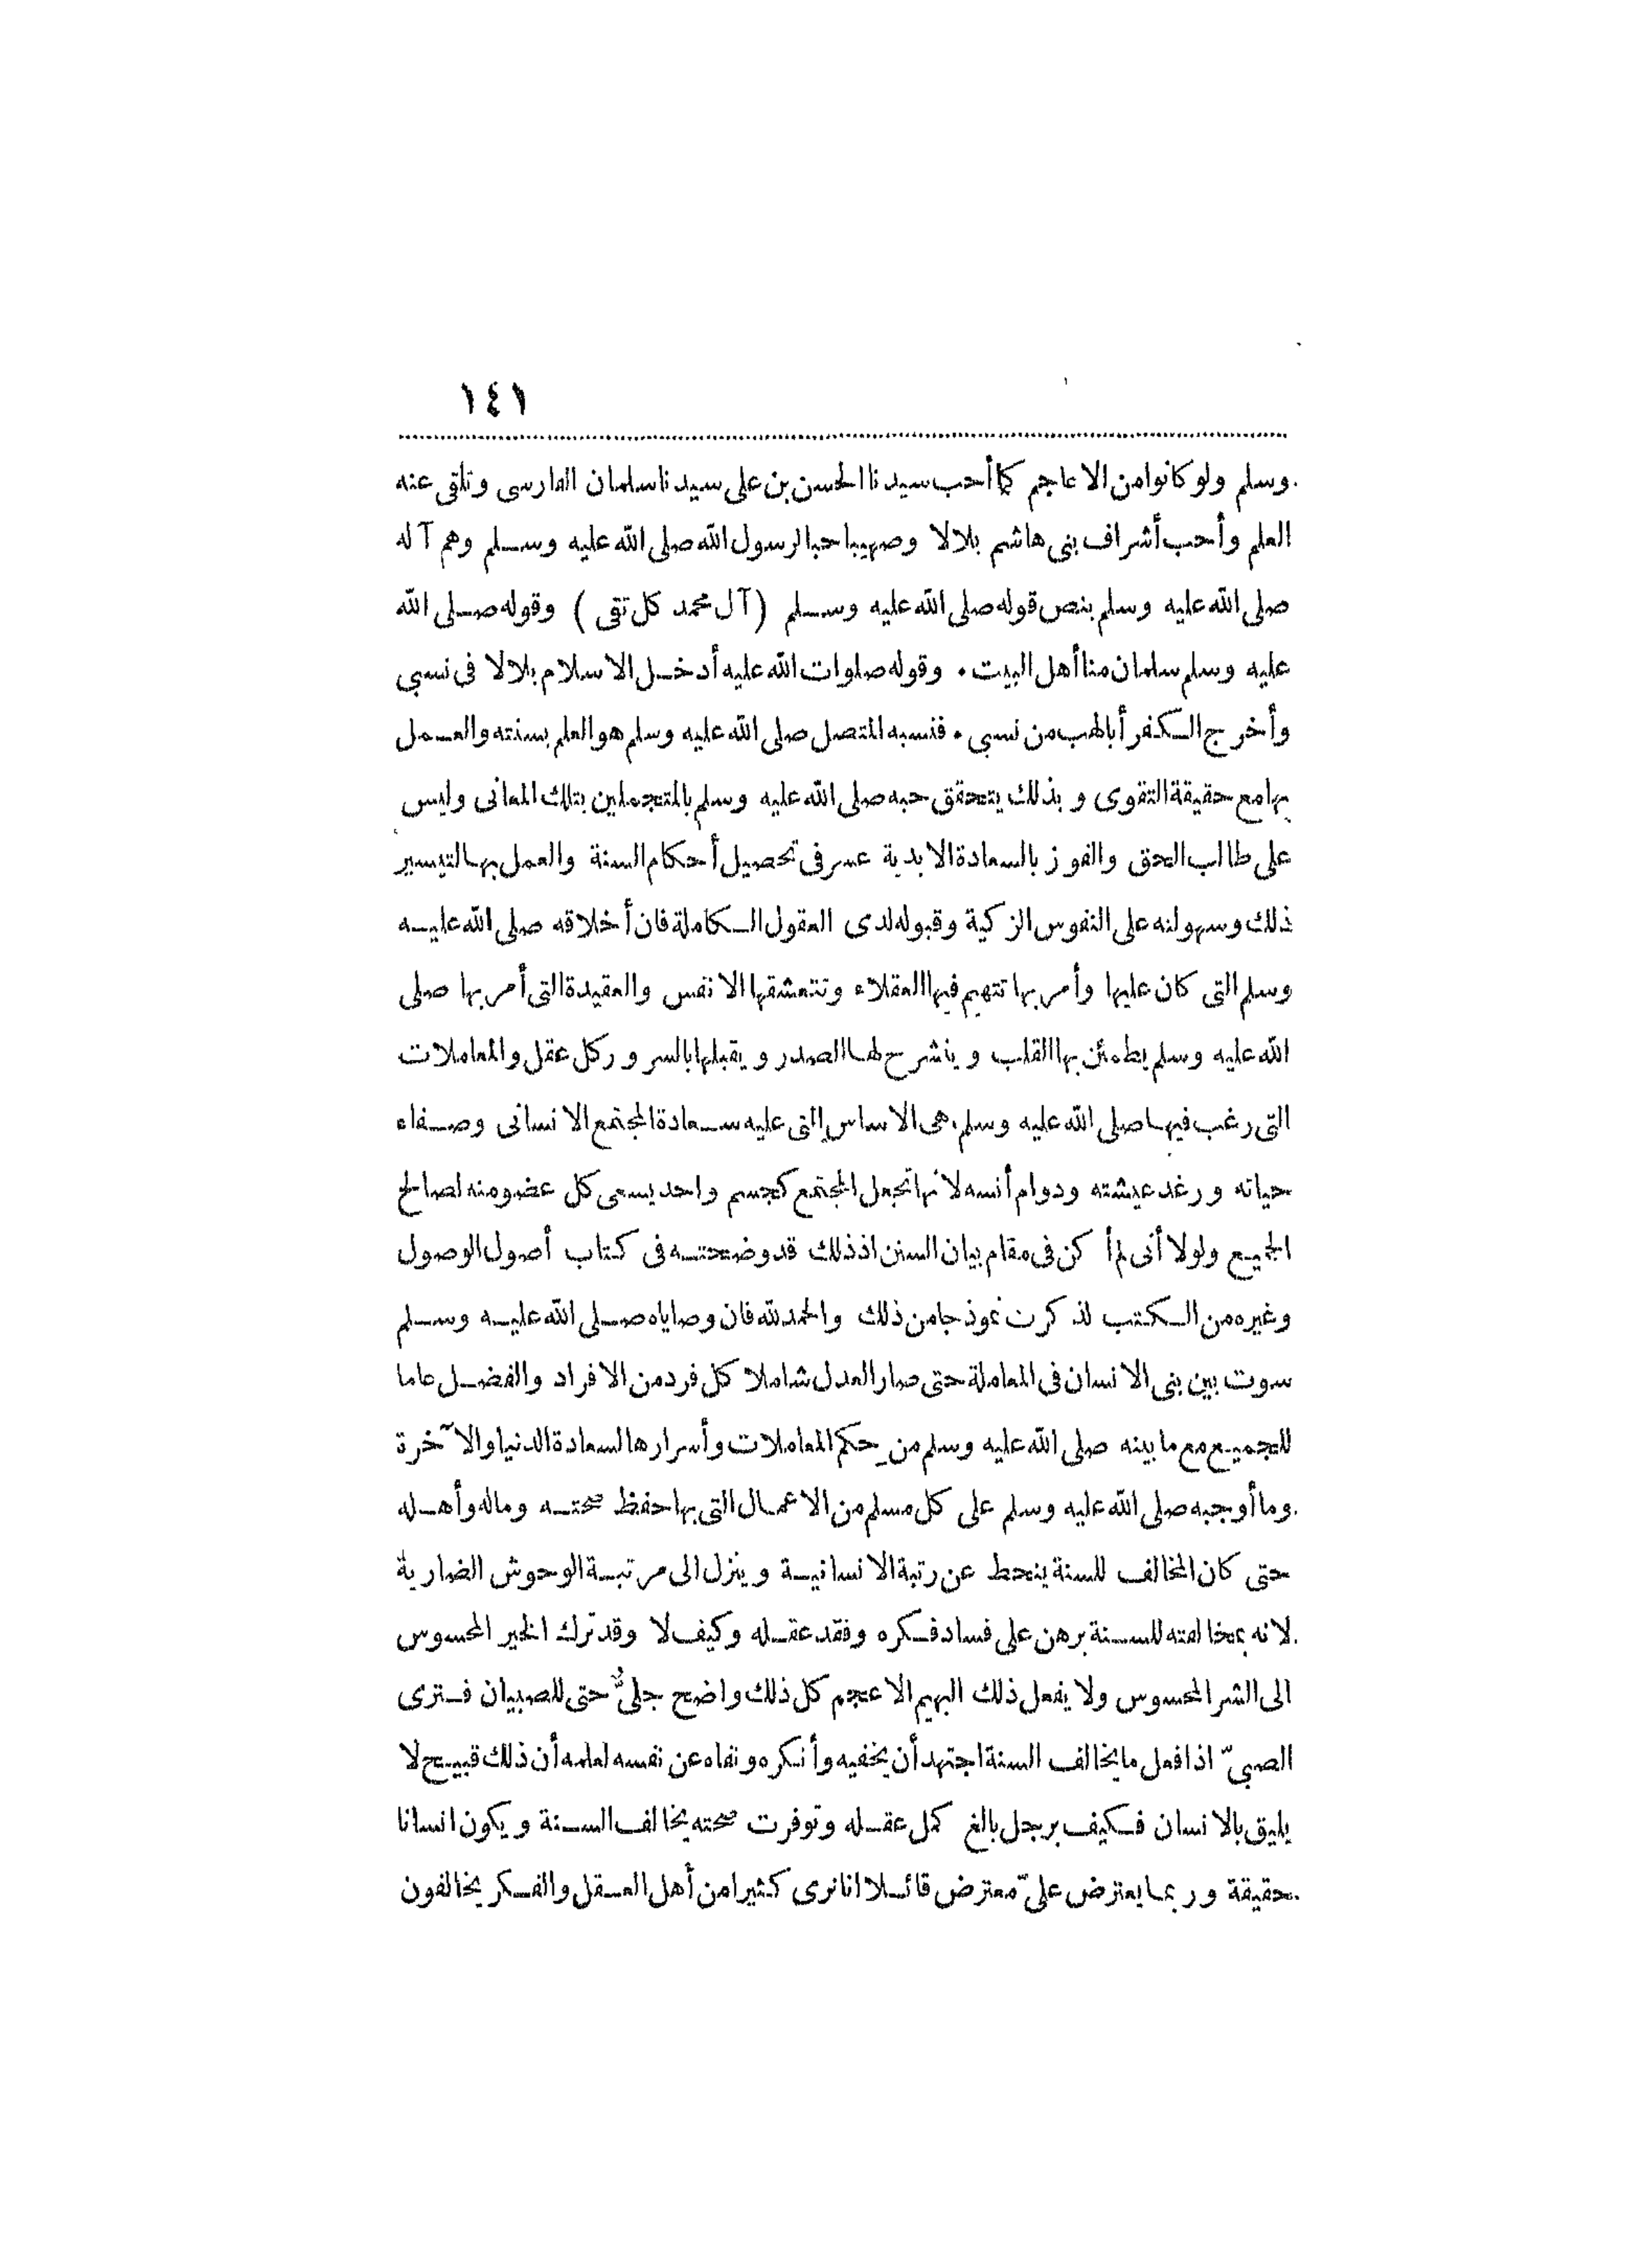 ١٤١
وسلم ولو كانوا من الاعاجم كما أحب سيدنا الحسن بن على سيدنا سلمان الفارسى وتلقى عنه
العلم وأحب أشراف بنى هاشم بلالا وصهيبا حبا لرسول الله صلى الله عليه وسلم وهم آله
صلى الله عليه وسلم بنص قوله صلى الله عليه وسلم (آل محمد كل تقى) وقوله صلى الله
عليه وسلم سلمان منا أهل البيت . وقوله صلوات الله عليه أدخل الاسلام بلالا فى نسبى
وأخرج الكفر أبا لهب من نسبى . فنسبه المتصل صلى الله عليه وسلم هو العلم بسنته والعمل
بها مع حقيقة التقوى وبذلك يتحقق حبه صلى الله عليه وسلم بالمتجملين بتلك المعانى وليس
على طالب الحق والفوز بالسعادة الابدية عسر فى تحصيل أحكام السنة والعمل بها لتيسير
ذلك وسهولته على النفوس الزكية وقبوله لدى العقول الكاملة فان أخلاقه صلى الله عليه
وسلم التى كان عليها وأمر بها تتهيم فيها العقلاء وتتعشقها الانفس والعقيدة التى أمر بها صلى
الله عليه وسلم يطمئن بها القلب وينشرح لها الصدر ويقبلها بالسرور كل عقل والمعاملات
التى رغب فيها صلى الله عليه وسلم هى الاساس التى عليه سعادة المجتمع الانسانى وصفاء
حياته ورغد عيشته ودوام أنسه لانها تجعل المجتمع كجسم واحد يسعى كل عضو منه لصالح
الجميع ولولا أنى لم أكن فى مقام بيان السنن اذ ذلك قد وضحته فى كتاب أصول الوصول
وغيره من الكتب لذكرت نموذجا من ذلك والحمد لله فان وصاياه صلى الله عليه وسلم
سوت بين بنى الانسان فى المعاملة حتى صار العدل شاملا كل فرد من الافراد والفضل عاما
للجميع مع ما بينه صلى الله عليه وسلم من حكم المعاملات وأسرارها لسعادة الدنيا والآخرة
وما أوجبه صلى الله عليه وسلم على كل مسلم من الاعمال التى بها حفظ صحته وماله وأهله
حتى كان المخالف للسنة ينحط عن رتبة الانسانية وينزل الى مرتبة الوحوش الضارية
لانه بمخالفته للسنة برهن على فساد فكره وفقد عقله وكيف لا وقد ترك الخير المحسوس
الى الشر المحسوس ولا يفعل ذلك البهيم الاعجم كل ذلك واضح جلىٌّ حتى للصبيان فترى
الصبىّ اذا فعل ما يخالف السنة اجتهد أن يخفيه وأنكره ونفاه عن نفسه لعلمه أن ذلك قبيح لا
يليق بالانسان فكيف برجل بالغ كمل عقله وتوفرت صحته يخالف السنة ويكون انسانا
حقيقة وربما يعترض علىّ معترض قائلا انا نرى كثيرا من أهل العقل والفكر يخالفون